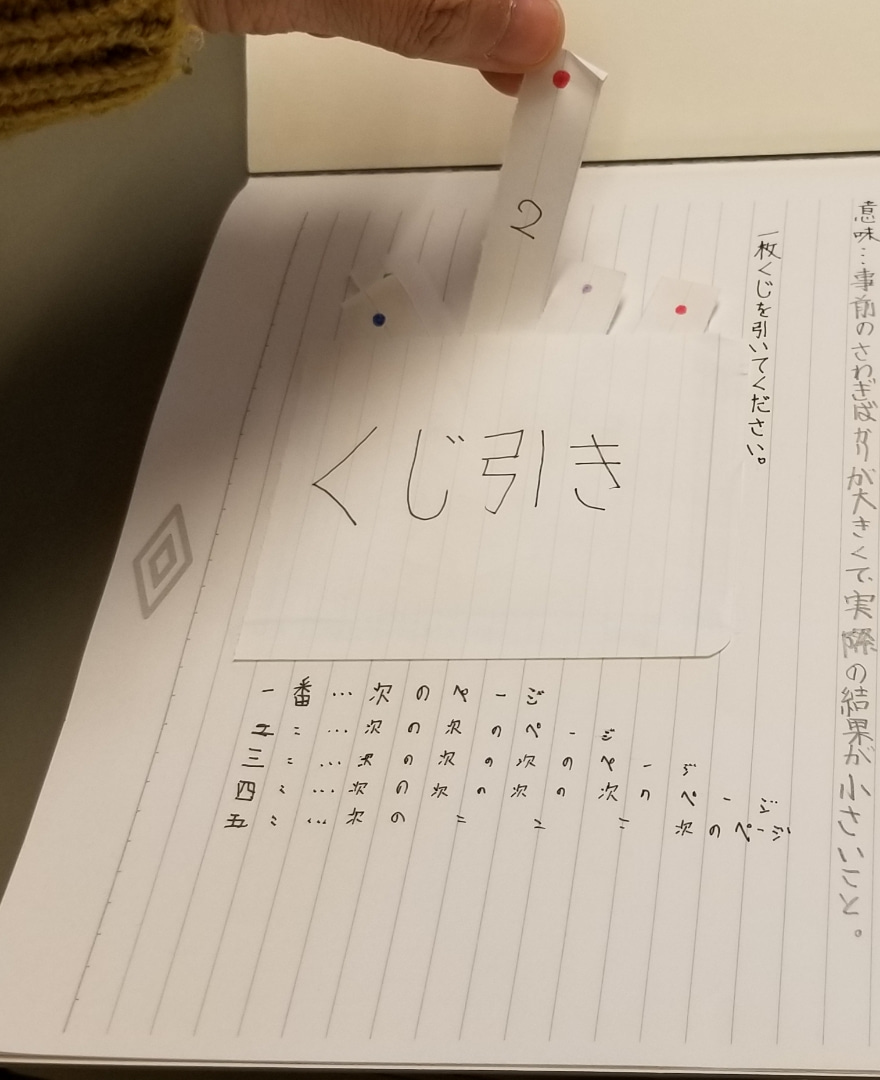 意味…事前のさわぎばかりが大きくて実際の結果が小さいこと。
一枚くじを引いてください。
2
くじ引き
一番…次のページ
二〃…次の次のページ
三〃…次の次の次のページ
四〃…次の次の次の次のページ
五〃…次の〃〃〃次のページ